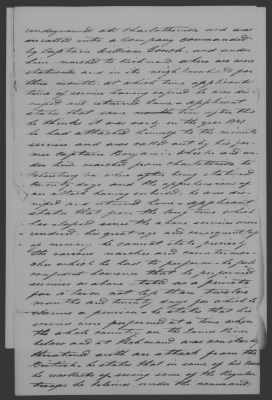 rendezvoused at Charlottesville and was
enrolled into a Company commanded
by Captain William and under
him marched to Richmond where we were
stationed, and in its neighborhood, for
three months at which time applicants
time of service having expired he was dis-
missed and returned home - applicant
states that some months after this
he thinks it was early in the year 1781
he had attached himself to the minute
service and was called out by his for-
mer Captain Benjamin Harris and un-
der him marched from Charlottesville to
Petersburg Va where after being stationed
twenty days and the apprehensions of
an attack having ceased, he was dis-
missed and returned home - applicant
states that from the long time which
has elapsed since the above services were
rendered, his great age and consequent loss
of memory he cannot state precisely
the various marches and counter march-
es which he had to perform - he feels
confident however that he performed
service as above stated as a private
for a term not less than twelve
months and twenty days for which he
claims a pension - he states that his
services were performed at a time when
the whole country on the James River
below and at Richmond was constantly
threatened with an attack from the
British - he states that in some of his tours
he recollects of seeing some of the Regular
troops he believes under the command